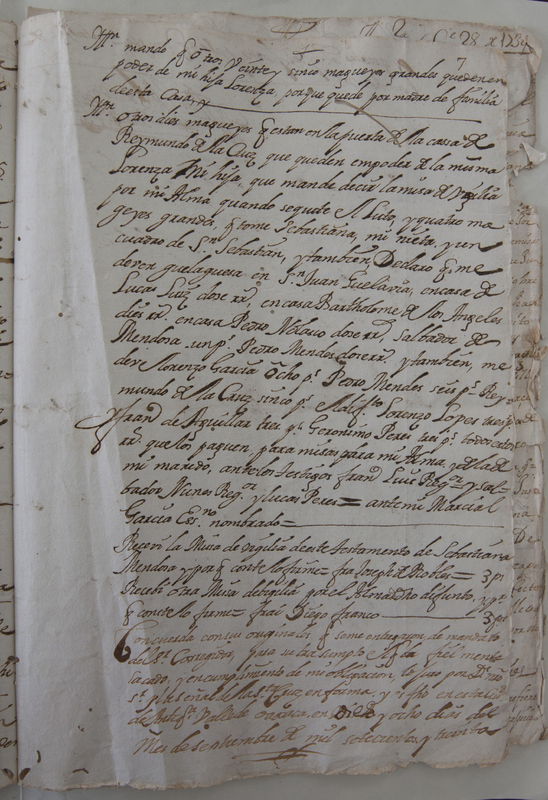 7
Ytn mando q otros veinte y sinco magueyes grandes queden en
poder de mi hija Lorenza, porque quede por madre de familia
de esta Casa, y
Ytn otros dies magueyes q estan en la puerta de la casa de
Reymundo de la Cruz que queden em poder de la misma
Lorenza Mi hija, que mande decir la misa de vigilia
por mi Alma, quando se quite, y quatro ma
geyes grandes, q tome Sebastiana, mi nieta, y un
cuadro de Sn Sebastian, y tambien, Declaro q me
deven guelaguesa en Sn Juan Guelavia, en casa de
Lucas Luis dose rr, en casa Bartholome de los Angeles
dies rr en casa Pedro Nolasco dose rr, Salbador de
Mendosa un ps Pedro Mendes dose rr y tambien, me
deve Lorenzo Garcia Ocho ps Pedro Mendes seis ps Rey
mundo de la Cruz sinco ps Lorenzo Lopes tres ps
Frano de Aguillar tres ps Geronimo Peres tres ps
rr que los paguen, para misas para mi Alma, y de la de
mi marido, ante los testigos Frano Luis Regor y Sal
bador Nunes Regor y Lucas Peres = ante mi Marcial
Garcia Essno nombrado =
Recevi la Misa de vigilia de este testamento de Sebastiana
Mendoza y porq conste lo firme = frai Joseph de Robles = 3 ps
Recebi otra Misa de vigilia por el Alma de dho defunto, y pa
q conste lo firme = frai Diego franco 3 ps
Concuerda con su original q some entregaron, de mandato
del Sr Corregidor, para su trasumpto
sacado, y en cumplimiento de mi obligacion, lo juro por Dios nro
Sr y la señal de la Sta Cruz en forma, y
Valle de oaxaca, en dies y ocho dias del
Mes de septiembre de mil setecientos, y treinta